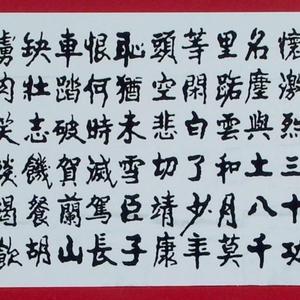 懷激烈三十功
名塵與土八千
里路雲和月莫
等閑白了少年
頭空悲切靖康
恥猶未雪臣子
恨何時滅駕長
車踏破賀蘭山
缺壯志饑餐胡
虜肉笑談渴飲